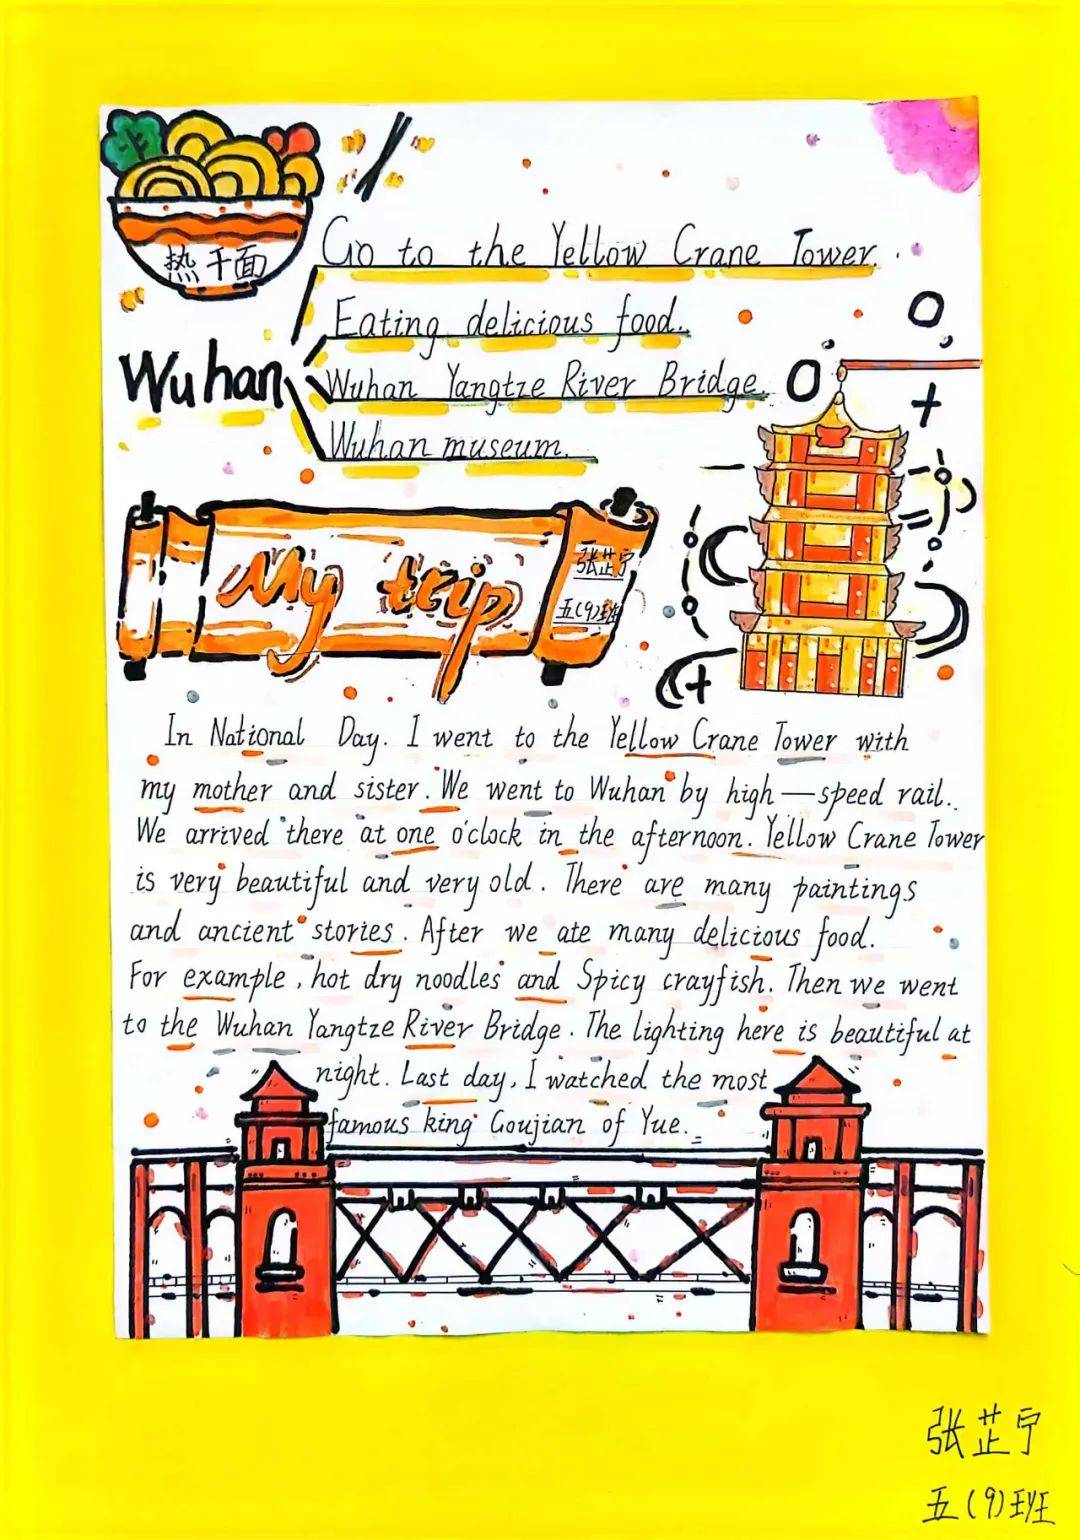 热干面
Go to the Yellow Crane Tower.
Eating delicious food.
Wuhan
Wuhan Yangtze River Bridge.
Wuhan museum.
My trip
张芷宁
五(9)班
In National Day. I went to the Yellow Crane Tower with
my mother and sister. We went to Wuhan by high—speed rail.
We arrived there at one o'clock in the afternoon. Yellow Crane Tower
is very beautiful and very old. There are many paintings
and ancient stories. After we ate many delicious food.
For example, hot dry noodles and Spicy crayfish. Then we went
to the Wuhan Yangtze River Bridge. The lighting here is beautiful at
night. Last day, I watched the most
famous king Goujian of Yue.
张芷宁
五(9)班